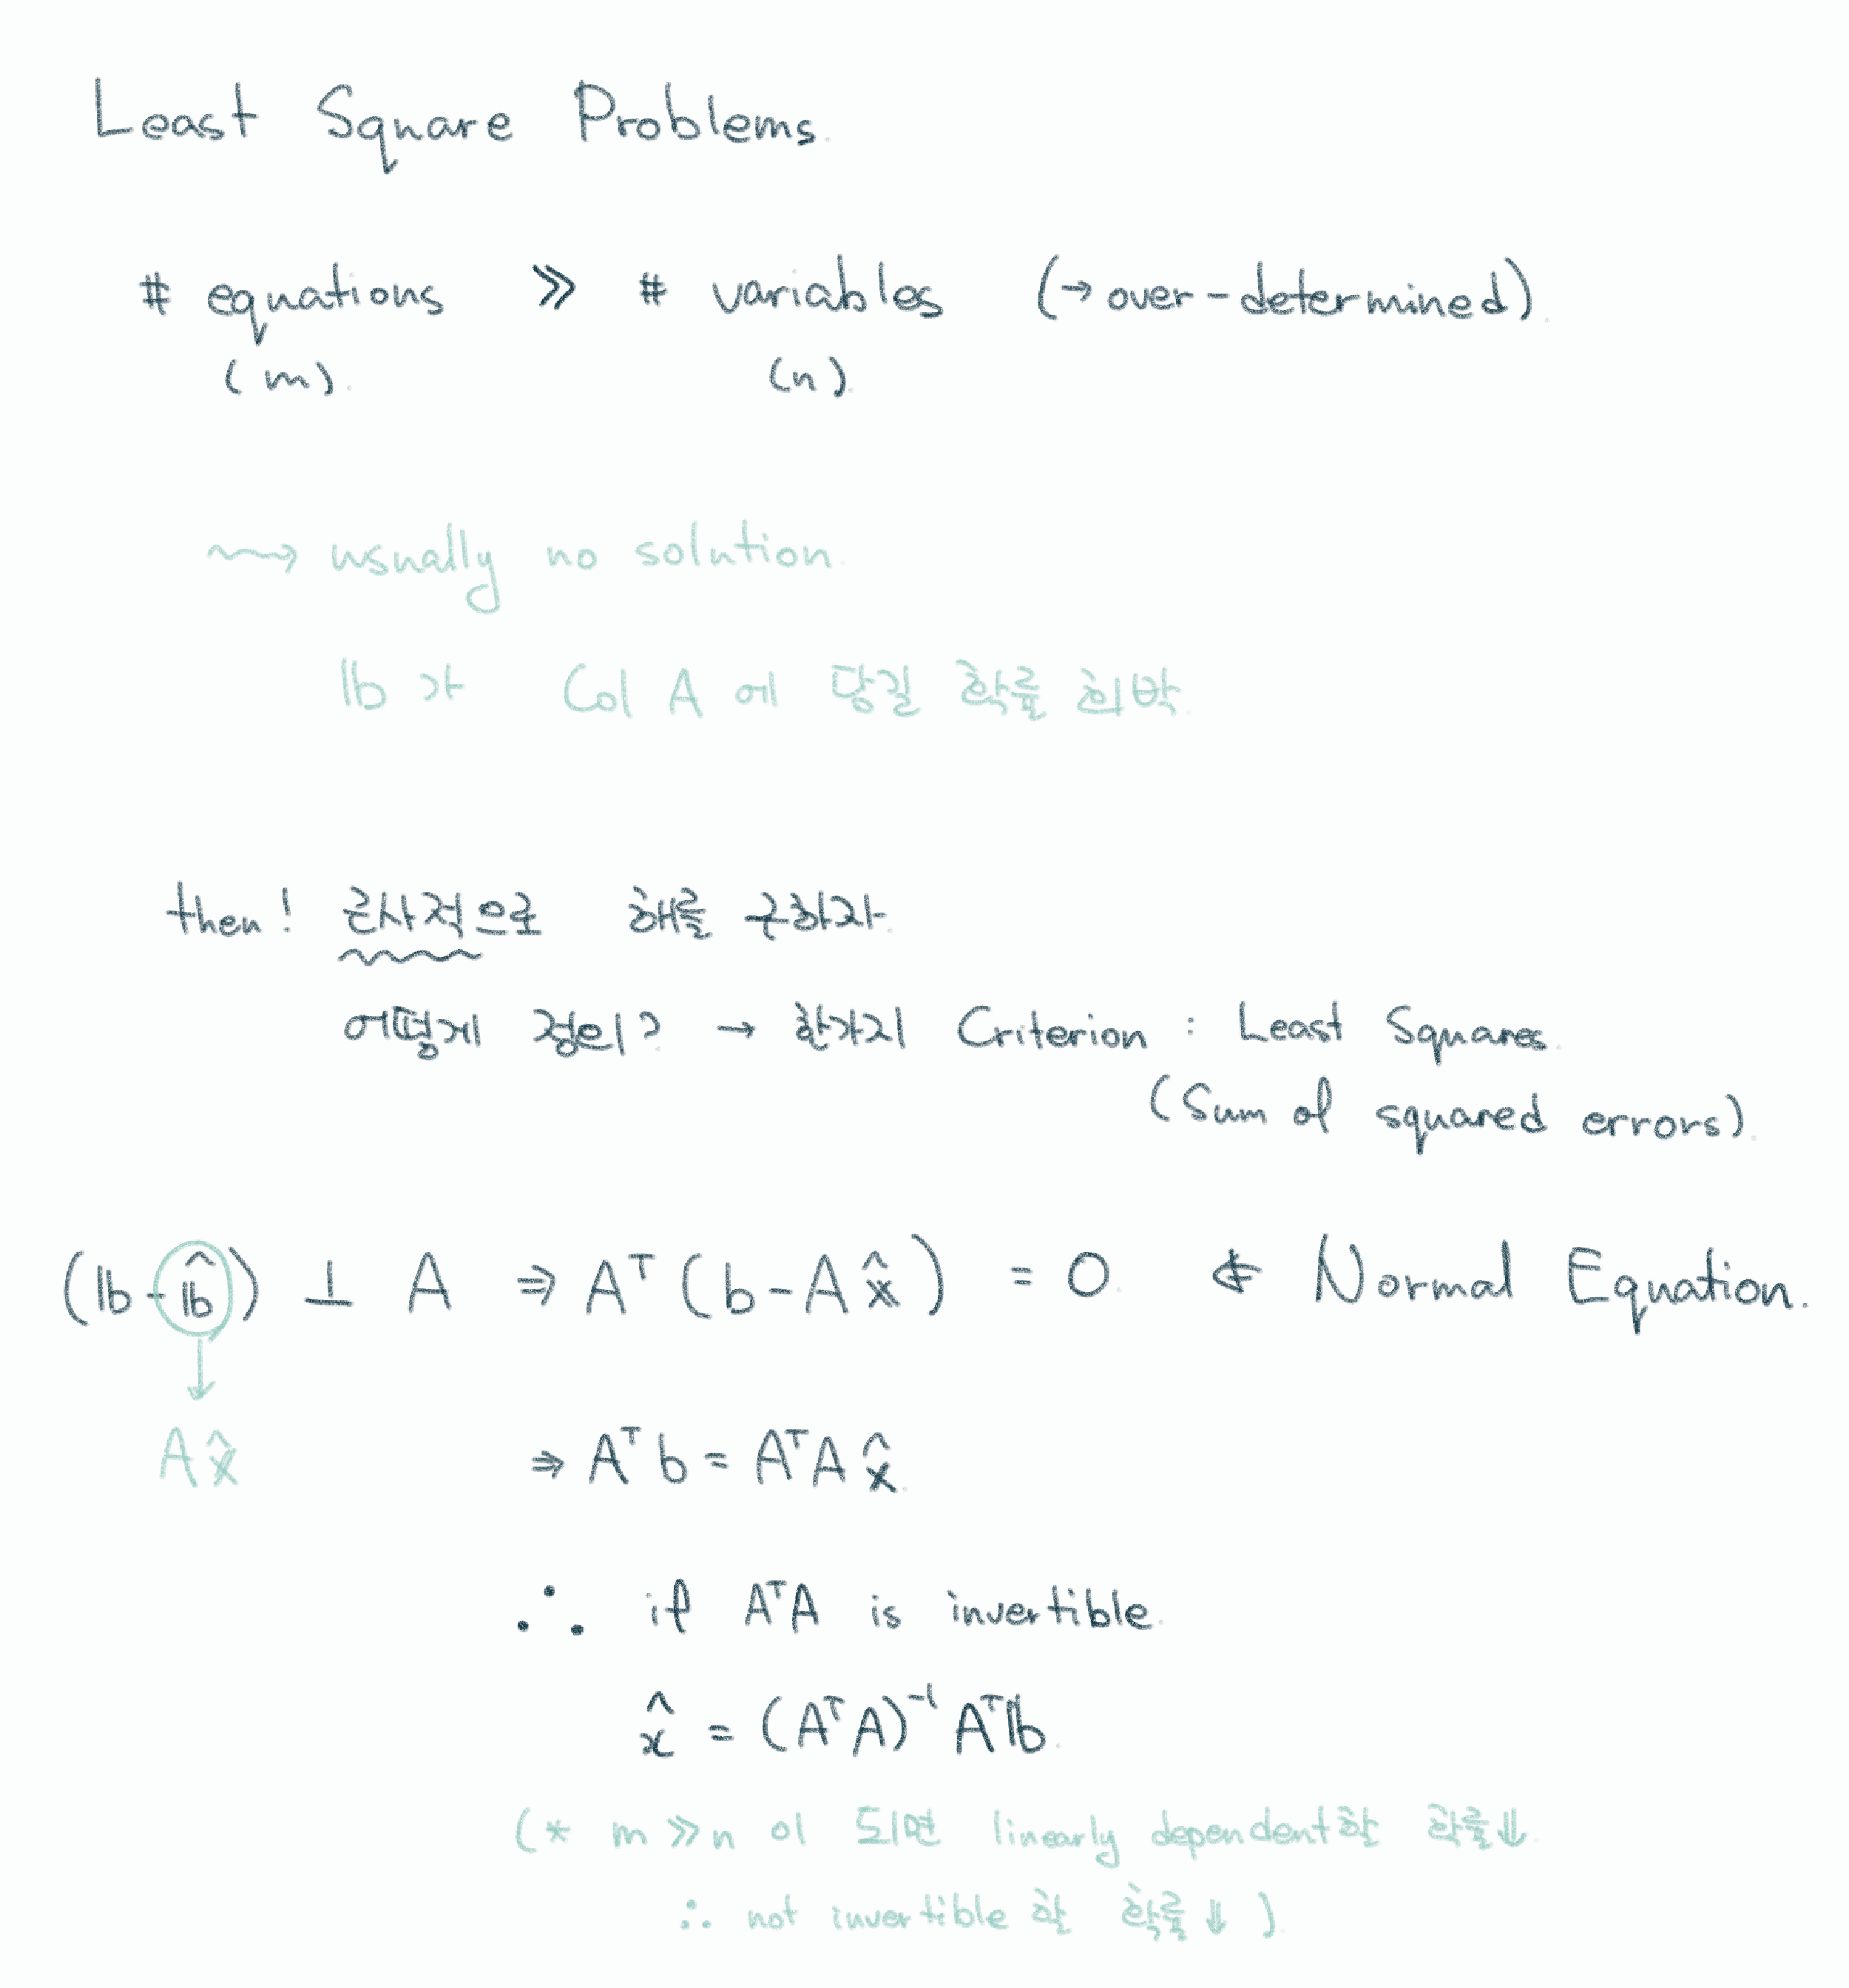 Least Square Problems.
# equations ≫ # variables (→ over-determined).
(m). (n).
⇝ usually no solution.
𝕓가 Col A에 담길 확률 희박.
then! 근사적으로 해를 구하자.
어떻게 정의? → 한가지 Criterion : Least Squares.
(Sum of squared errors).
(𝕓-𝕓̂) ⊥ A ⇒ Aᵀ(b-Ax̂) = 0. ⇐ Normal Equation.
↓
Ax̂ ⇒ Aᵀb = AᵀAx̂.
∴ if AᵀA is invertible.
x̂ = (AᵀA)⁻¹Aᵀ𝕓.
(* m≫n 이 되면 linearly dependent할 확률⇓.
∴ not invertible 할 확률⇓).